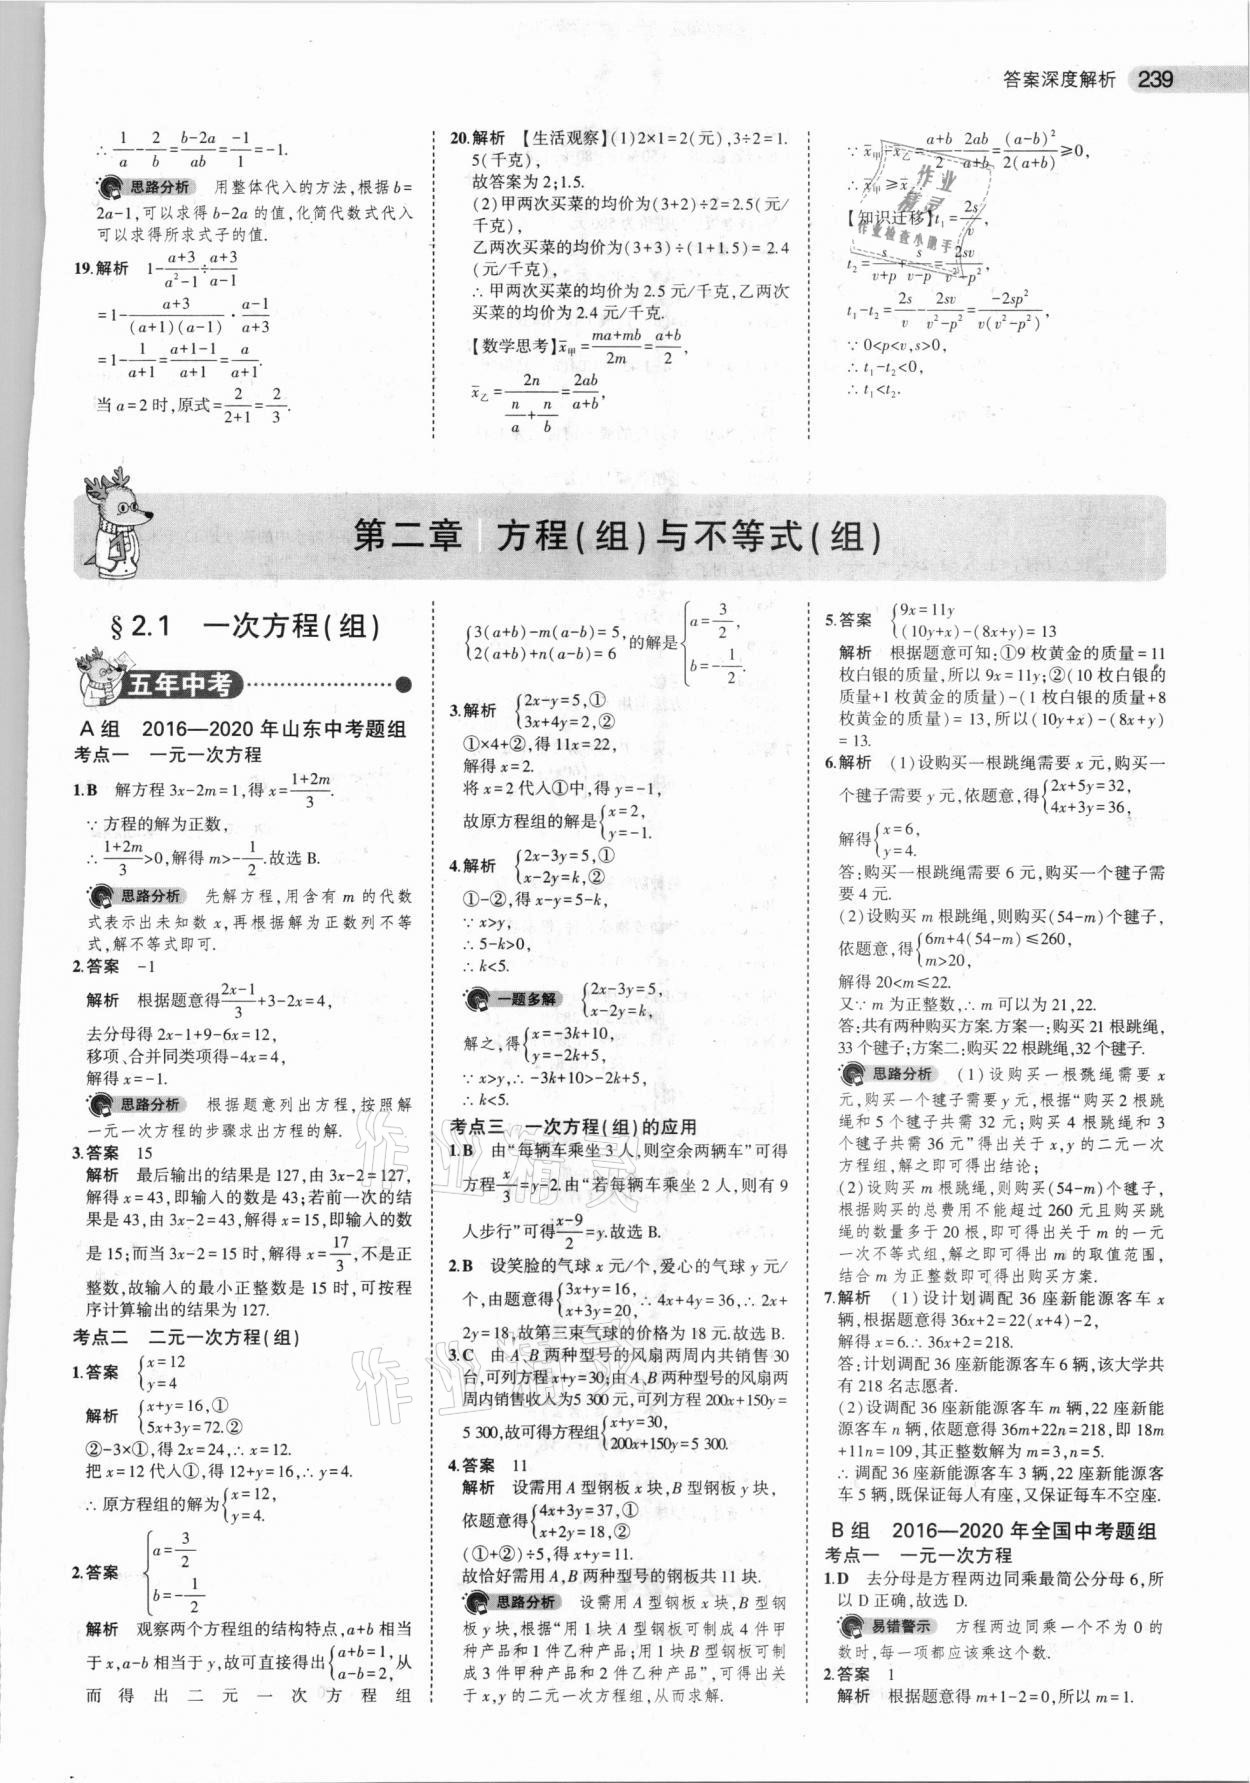 答案深度解析 239
∴ 1/a-2/b=(b-2a)/ab=-1/1=-1.
思路分析 用整体代入的方法,根据b=
2a-1,可以求得b-2a的值,化简代数式代入
可以求得所求式子的值.
19.解析 1-(a+3)/(a²-1)÷(a+3)/(a-1)
=1-(a+3)/((a+1)(a-1))·(a-1)/(a+3)
=1-1/(a+1)=(a+1-1)/(a+1)=a/(a+1).
当a=2时,原式=2/(2+1)=2/3.
20.解析 【生活观察】(1)2×1=2(元),3÷2=1.
5(千克),
故答案为2;1.5.
(2)甲两次买菜的均价为(3+2)÷2=2.5(元/
千克),
乙两次买菜的均价为(3+3)÷(1+1.5)=2.4
(元/千克),
∴甲两次买菜的均价为2.5元/千克,乙两次
买菜的均价为2.4元/千克.
【数学思考】x̄甲=(ma+mb)/2m=(a+b)/2,
x̄乙=2n/(n/a+n/b)=2ab/(a+b),
∵x̄甲-x̄乙=(a+b)/2-2ab/(a+b)=(a-b)²/(2(a+b))≥0,
∴x̄甲≥x̄乙.
【知识迁移】t₁=2s/v,
t₂=s/(v+p)+s/(v-p)=2sv/(v²-p²),
t₁-t₂=2s/v-2sv/(v²-p²)=-2sp²/(v(v²-p²)),
∵0<p<v,s>0,
∴t₁-t₂<0,
∴t₁<t₂.
作业
精灵
作业检查小助手
第二章 方程(组)与不等式(组)
§2.1 一次方程(组)
五年中考
A组 2016—2020年山东中考题组
考点一 一元一次方程
1.B 解方程3x-2m=1,得x=(1+2m)/3.
∵方程的解为正数,
∴(1+2m)/3>0,解得m>-1/2.故选B.
思路分析 先解方程,用含有m的代数
式表示出未知数x,再根据解为正数列不等
式,解不等式即可.
2.答案 -1
解析 根据题意得(2x-1)/3+3-2x=4,
去分母得2x-1+9-6x=12,
移项、合并同类项得-4x=4,
解得x=-1.
思路分析 根据题意列出方程,按照解
一元一次方程的步骤求出方程的解.
3.答案 15
解析 最后输出的结果是127,由3x-2=127,
解得x=43,即输入的数是43;若前一次的结
果是43,由3x-2=43,解得x=15,即输入的数
是15;而当3x-2=15时,解得x=17/3,不是正
整数,故输入的最小正整数是15时,可按程
序计算输出的结果为127.
考点二 二元一次方程(组)
1.答案 {x=12
y=4
解析 {x+y=16,①
5x+3y=72.②
②-3×①,得2x=24,∴x=12.
把x=12代入①,得12+y=16,∴y=4.
∴原方程组的解为{x=12,
y=4.
2.答案 {a=3/2
b=-1/2
解析 观察两个方程组的结构特点,a+b相当
于x,a-b相当于y,故可直接得出{a+b=1,
a-b=2,从
而得出二元一次方程组
{3(a+b)-m(a-b)=5,
2(a+b)+n(a-b)=6 的解是{a=3/2,
b=-1/2.
3.解析 {2x-y=5,①
3x+4y=2,②
①×4+②,得11x=22,
解得x=2.
将x=2代入①中,得y=-1,
故原方程组的解是{x=2,
y=-1.
4.解析 {2x-3y=5,①
x-2y=k,②
①-②,得x-y=5-k,
∵x>y,
∴5-k>0,
∴k<5.
一题多解 {2x-3y=5,
x-2y=k,
解之,得{x=-3k+10,
y=-2k+5,
∵x>y,∴-3k+10>-2k+5,
∴k<5.
考点三 一次方程(组)的应用
1.B 由“每辆车乘坐3人,则空余两辆车”可得
方程x/3=y-2.由“若每辆车乘坐2人,则有9
人步行”可得(x-9)/2=y.故选B.
2.B 设笑脸的气球x元/个,爱心的气球y元/
个,由题意得{3x+y=16,
x+3y=20,∴4x+4y=36,∴2x+
2y=18,故第三束气球的价格为18元.故选B.
3.C 由A、B两种型号的风扇两周内共销售30
台,可列方程x+y=30;由A、B两种型号的风扇两
周内销售收入为5 300元,可列方程200x+150y=
5 300,故可得方程组{x+y=30,
200x+150y=5 300.
4.答案 11
解析 设需用A型钢板x块,B型钢板y块,
依题意得{4x+3y=37,①
x+2y=18,②
(①+②)÷5,得x+y=11.
故恰好需用A、B两种型号的钢板共11块.
思路分析 设需用A型钢板x块,B型钢
板y块,根据“用1块A型钢板可制成4件甲
种产品和1件乙种产品;用1块B型钢板可制
成3件甲种产品和2件乙种产品”,可得出关
于x,y的二元一次方程组,从而求解.
5.答案 {9x=11y
(10y+x)-(8x+y)=13
解析 根据题意可知:①9枚黄金的质量=11
枚白银的质量,所以9x=11y;②(10枚白银的
质量+1枚黄金的质量)-(1枚白银的质量+8
枚黄金的质量)=13,所以(10y+x)-(8x+y)
=13.
6.解析 (1)设购买一根跳绳需要x元,购买一
个毽子需要y元,依题意,得{2x+5y=32,
4x+3y=36,
解得{x=6,
y=4.
答:购买一根跳绳需要6元,购买一个毽子需
要4元.
(2)设购买m根跳绳,则购买(54-m)个毽子,
依题意,得{6m+4(54-m)≤260,
m>20,
解得20<m≤22.
又∵m为正整数,∴m可以为21,22.
答:共有两种购买方案.方案一:购买21根跳绳,
33个毽子;方案二:购买22根跳绳,32个毽子.
思路分析 (1)设购买一根跳绳需要x
元,购买一个毽子需要y元,根据“购买2根跳
绳和5个毽子共需32元;购买4根跳绳和3
个毽子共需36元”得出关于x,y的二元一次
方程组,解之即可得出结论;
(2)设购买m根跳绳,则购买(54-m)个毽子,
根据购买的总费用不能超过260元且购买跳
绳的数量多于20根,即可得出关于m的一元
一次不等式组,解之即可得出m的取值范围,
结合m为正整数即可得出购买方案.
7.解析 (1)设计划调配36座新能源客车x
辆,根据题意得36x+2=22(x+4)-2,
解得x=6.∴36x+2=218.
答:计划调配36座新能源客车6辆,该大学共
有218名志愿者.
(2)设调配36座新能源客车m辆,22座新能
源客车n辆,依题意得36m+22n=218,即18m
+11n=109,其正整数解为m=3,n=5.
∴调配36座新能源客车3辆,22座新能源客
车5辆,既保证每人有座,又保证每车不空座.
B组 2016—2020年全国中考题组
考点一 一元一次方程
1.D 去分母是方程两边同乘最简公分母6,所
以D正确,故选D.
易错警示 方程两边同乘一个不为0的
数时,每一项都应该乘这个数.
2.答案 1
解析 根据题意得m+1-2=0,所以m=1.
作业精灵
作业精灵